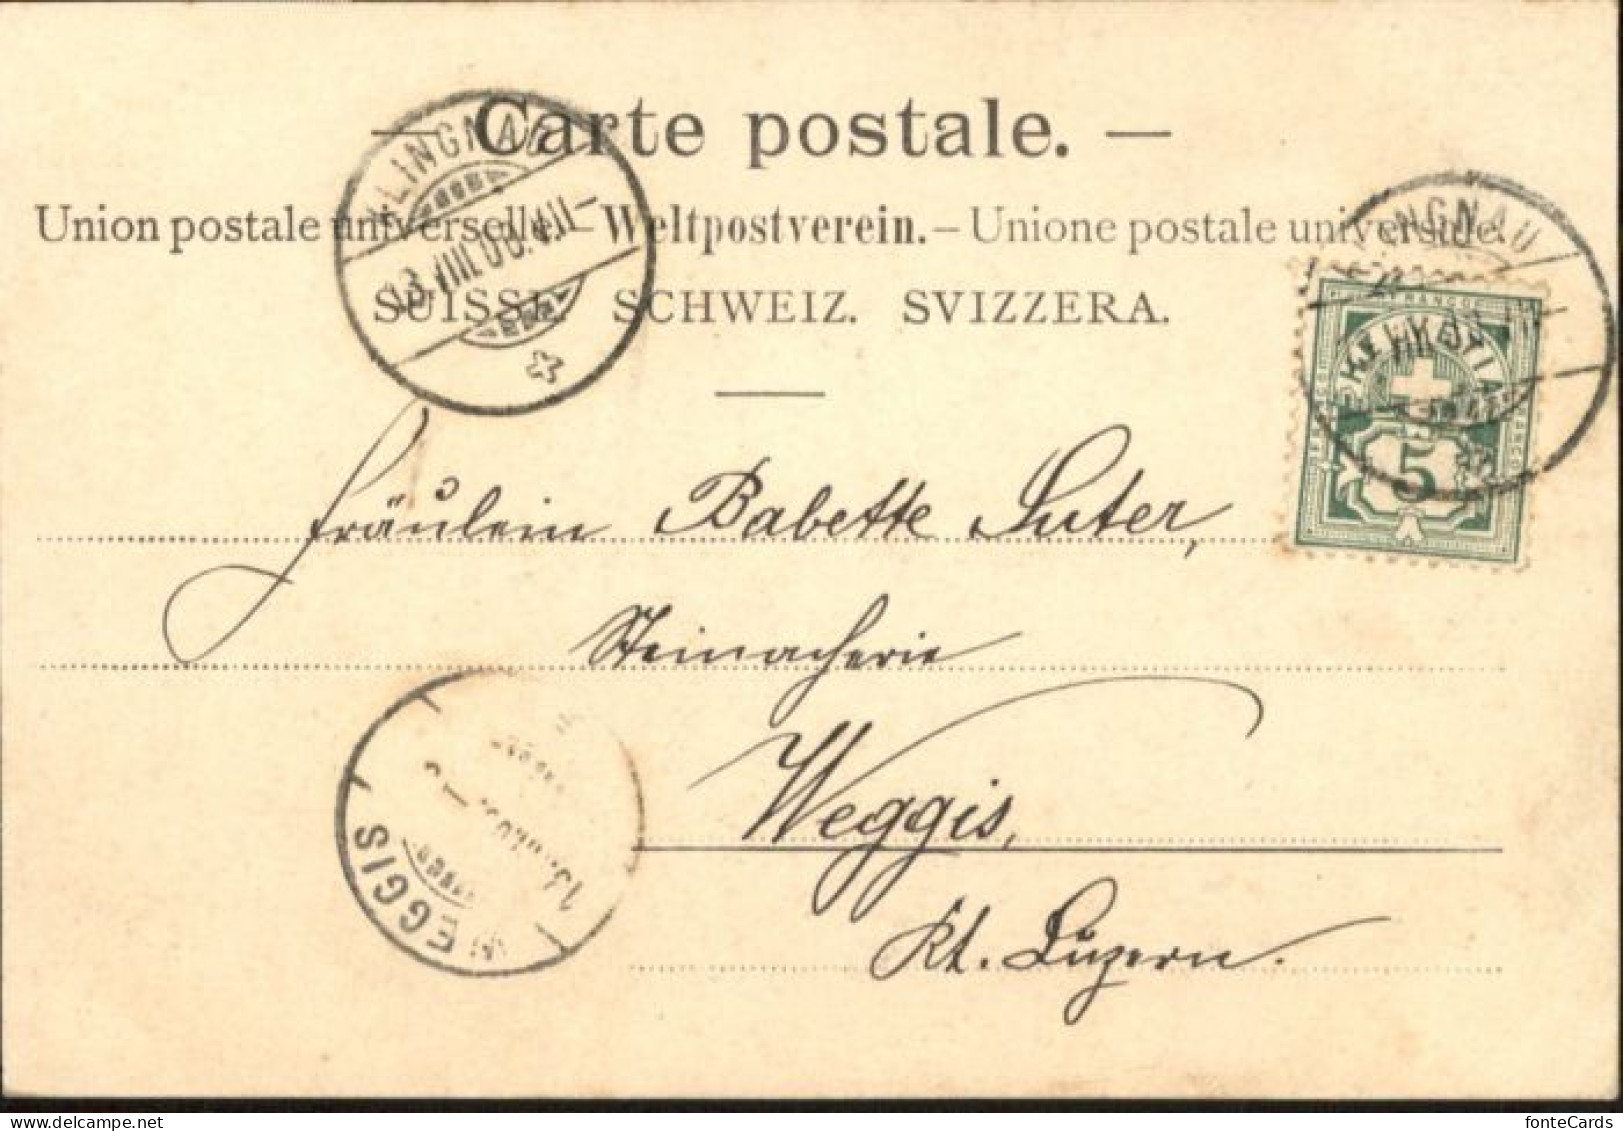 — Carte postale. —
Union postale universelle. – Weltpostverein. – Unione postale universale.
SUISSE. SCHWEIZ. SVIZZERA.
KLINGNAU
13.VIII.00.VII–
LINGNAU
FRANCO
5
Fräulein Babette Suter,
Steinacherie
Weggis,
Kt. Luzern.
WEGGIS
www.delcampe.net
fonteCards